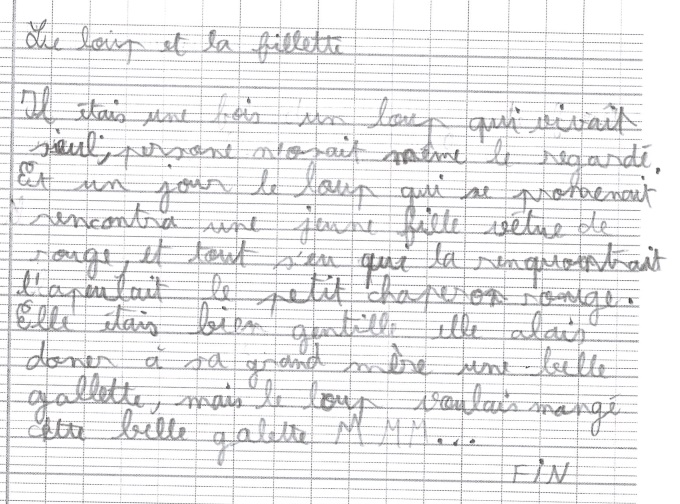 Le loup et la fillette
Il étais une fois un loup qui vivait
seul, persone n'osait même le regardé.
Et un jour le loup qui se promenait
rencontra une jeune fille vêtue de
rouge, et tout s'eu qui la renquontrait
l'apeulait le petit chaperon rouge.
Elle étais bien gentille elle alais
doner à sa grand mère une belle
gallette, mais le loup voulais mangé
cette belle galette M MM...
FIN